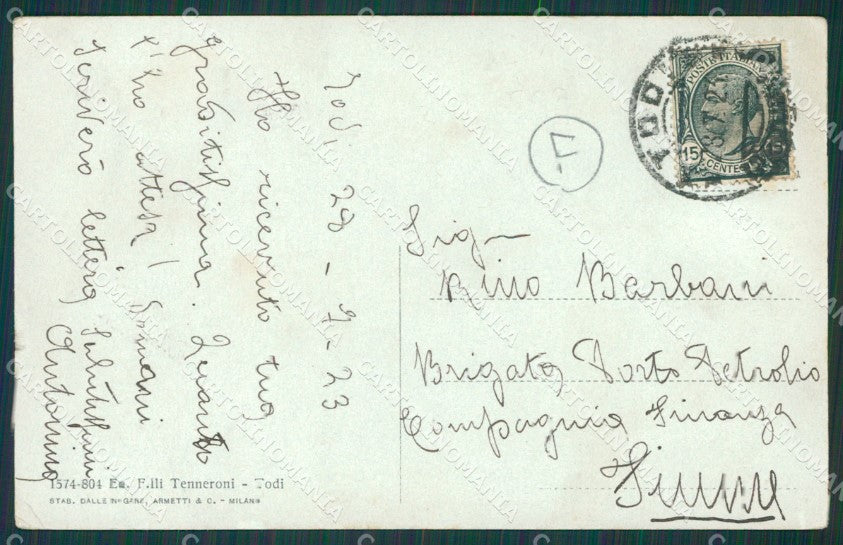 Todi, 28-7-23
Ho ricevuto tua
graditissima. Quanto
t'ho attesa! Domani
scriverò lettera Salutissimi
Antonino
Sig-
Nino Barbani
Brigata Porto Petrolio
Compagnia Finanza
Fiume
F
TODI
POSTE ITALIANE
15 CENTE 15
1574-804 Ed. F.lli Tenneroni - Todi
STAB. DALLE NOGARE, ARMETTI & C. - MILANO
CARTOLINOMANIA